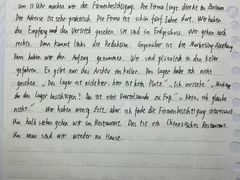 Um 11 Uhr machen wir die Firmenbesichtigung. Die Firma liegt direkt im Zentrum.
Die Adresse ist sehr praktisch. Die Firma ist schon fünf Jahre dort. Wir haben
den Empfang und den Vertrieb gesehen, sie sind im Erdgeschoss. Wir gehen nach
rechts. Dann kommt links die Redaktion. Gegenüber ist die Marketing-Abteilung.
Dann haben wir den Aufzug genommen. Wir sind plötzlich in den Keller
gefahren. Es gibt nur das Archiv im Keller. Das Lager habe ich nicht
gesehen. „Das Lager ist niedriger, hier ist kein Platz." „Ich verstehe". „Möchtest
du das Lager besichtigen? Das ist eine Viertelstunde zu Fuß." „Nein, ich glaube
nicht." Wir haben wenig Zeit, aber ich finde die Firmenbesichtigung interessant.
Um halb sieben gehen wir im Restaurant. Das ist ein Chinesisches Restaurant.
Um neun sind wir wieder zu Hause.